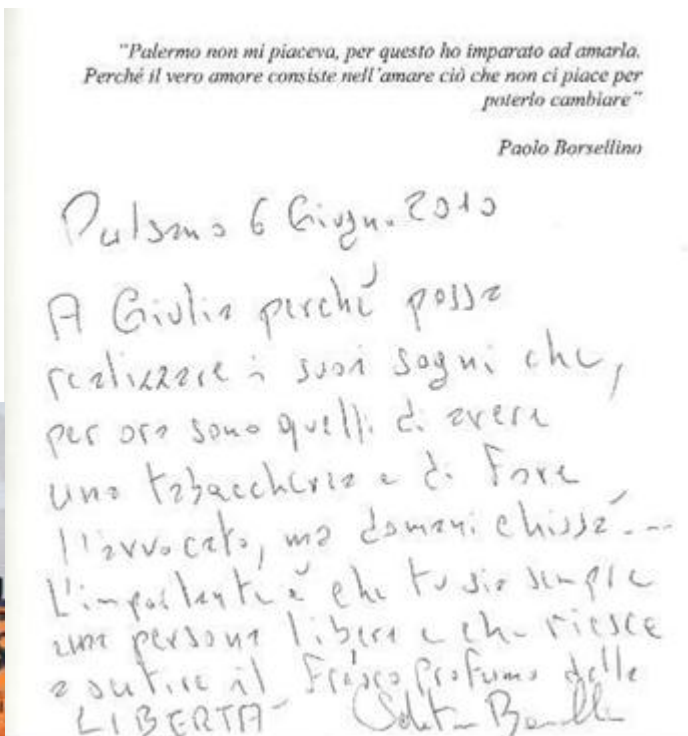 "Palermo non mi piaceva, per questo ho imparato ad amarla.
Perché il vero amore consiste nell'amare ciò che non ci piace per
poterlo cambiare"
Paolo Borsellino
Pulsano 6 Giugn. 2010
A Giulia perché possa
realizzare i suoi sogni che,
per ora sono quelli di avere
una tabaccheria e di fare
l'avvocato, ma domani chissà....
L'importante è che tu sia sempre
una persona libera e che riesce
a sentire il fresco profumo della
LIBERTÀ